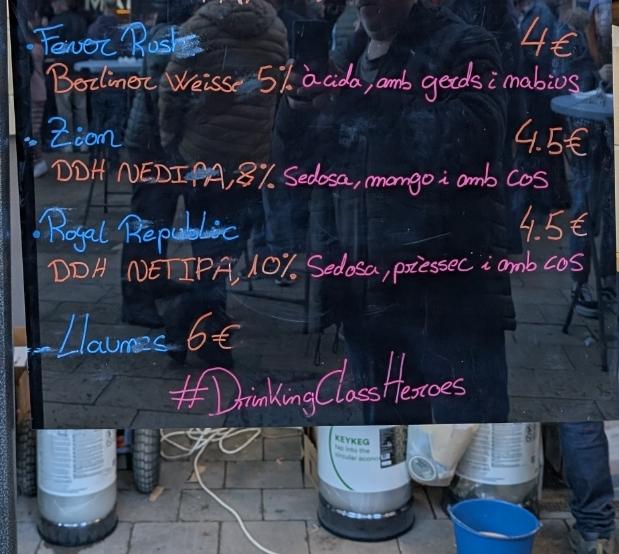 · Fever Rush 4€
Berliner Weisse 5% àcida, amb gerds i nabius
· Zion 4.5€
DDH NEDIPA, 8% Sedosa, mango i amb cos
· Royal Republic 4.5€
DDH NETIPA, 10% Sedosa, préssec i amb cos
- Llaunes 6€
#DrinkingClassHeroes
KEYKEG
Tap into the
circular economy